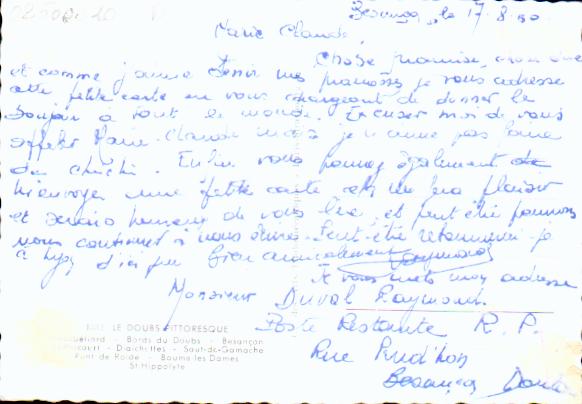 Besançon, le 17.8.60
Marie Claude,
Chose promise, chose due
et comme j'aime tenir mes promesses je vous adresse
cette petite carte en vous chargeant de donner le
bonjour à tout le monde. Excuser moi de vous
appeler Marie-Claude mais je n'aime pas faire
du chichi. Enfin vous pouvez également de
m'envoyer une petite carte cela me fera plaisir
et serais heureux de vous lire, et peut être pourrons
nous continuer à nous écrire. Peut-être retournerai-je
à d'ici peu. Bien amicalement Raymond
Je vous mets mon adresse
Monsieur Duval Raymond
Poste Restante R. P.
Rue Prud'hon
Besançon Doubs
LE DOUBS PITTORESQUE
- Bords du Doubs - Besançon
- Diaclettes - Saut-de-Gamache
Pont de Roide - Baume les Dames
St-Hippolyte